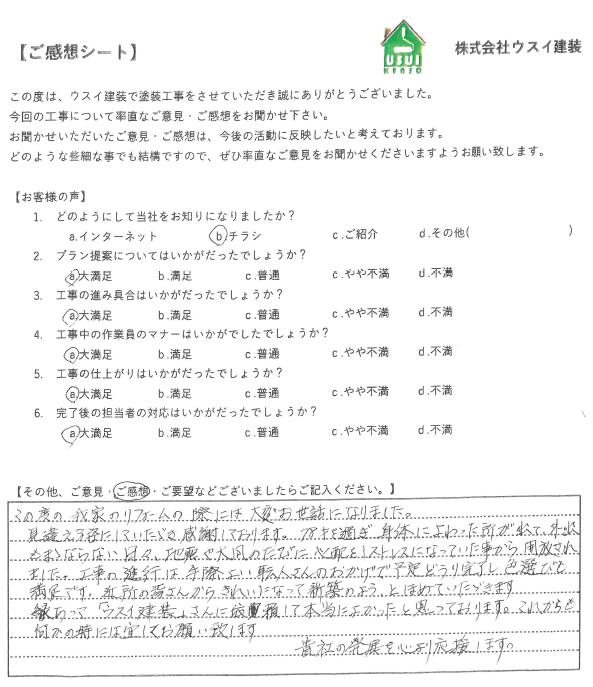 【ご感想シート】
USUI
KENSO
株式会社ウスイ建装
この度は、ウスイ建装で塗装工事をさせていただき誠にありがとうございました。
今回の工事について率直なご意見・ご感想をお聞かせ下さい。
お聞かせいただいたご意見・ご感想は、今後の活動に反映したいと考えております。
どのような些細な事でも結構ですので、ぜひ率直なご意見をお聞かせくださいますようお願い致します。
【お客様の声】
1. どのようにして当社をお知りになりましたか？
a.インターネット b.チラシ c.ご紹介 d.その他( )
2. プラン提案についてはいかがだったでしょうか？
a.大満足 b.満足 c.普通 c.やや不満 d.不満
3. 工事の進み具合はいかがだったでしょうか？
a.大満足 b.満足 c.普通 c.やや不満 d.不満
4. 工事中の作業員のマナーはいかがでしたでしょうか？
a.大満足 b.満足 c.普通 c.やや不満 d.不満
5. 工事の仕上がりはいかがだったでしょうか？
a.大満足 b.満足 c.普通 c.やや不満 d.不満
6. 完了後の担当者の対応はいかがだったでしょうか？
a.大満足 b.満足 c.普通 c.やや不満 d.不満
【その他、ご意見・ご感想・ご要望などございましたらご記入ください。】
この度の我家のリフォームの際には大変お世話になりました。
見違える程にしていただき感謝しております。を過ぎ身体によわった所が出て、外出
もままならない日々、地震や大風のたびに心配しストレスになっていた事から開放され
ました。工事の進行は手際よい職人さんのおかげで予定どうり完了し色選びも
満足です。近所の皆さんからきれいになって新築のよう、とほめていただきます
縁あって「ウスイ建装」さんに依頼して本当によかったと思っております。これからも
何かの時には宜しくお願い致します
貴社の発展を心より応援します。